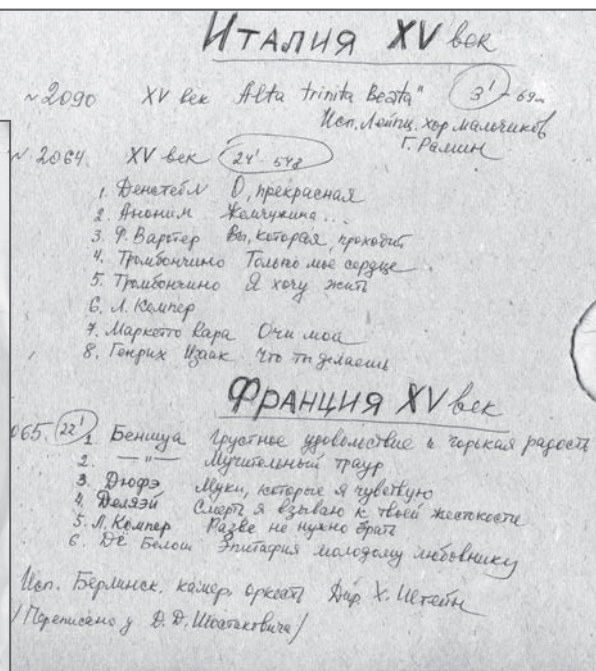 ИТАЛИЯ XV век
~2090 XV век Alta trinita Beata" 3'- 69м
Исп. Лейпц. хор мальчиков
Г. Рамин
N 2064. XV век 24'- 548
1. Денстебл О, прекрасная
2. Аноним Жемчужина...
3. Ф. Вартер Вы, которая, проходит
4. Тромбончино Только мое сердце
5. Тромбончино Я хочу жить
6. Л. Компер
7. Маркетто Кара Очи мои
8. Генрих Изаак Что ты делаешь
ФРАНЦИЯ XV век
065. 22' 1. Беншуа Грустное удовольствие и горькая радость
2. —"— Мучительный траур
3. Дюфэ Муки, которые я чувствую
4. Делаэй Смерть я взываю к твоей жестокости
5. Л. Компер Разве не нужно брать
6. Дё Белош Эпитафия молодому любовнику
Исп. Берлинск. камер. оркестр Дир. Х. Штейн
/Переписано у Д. Д. Шостаковича/